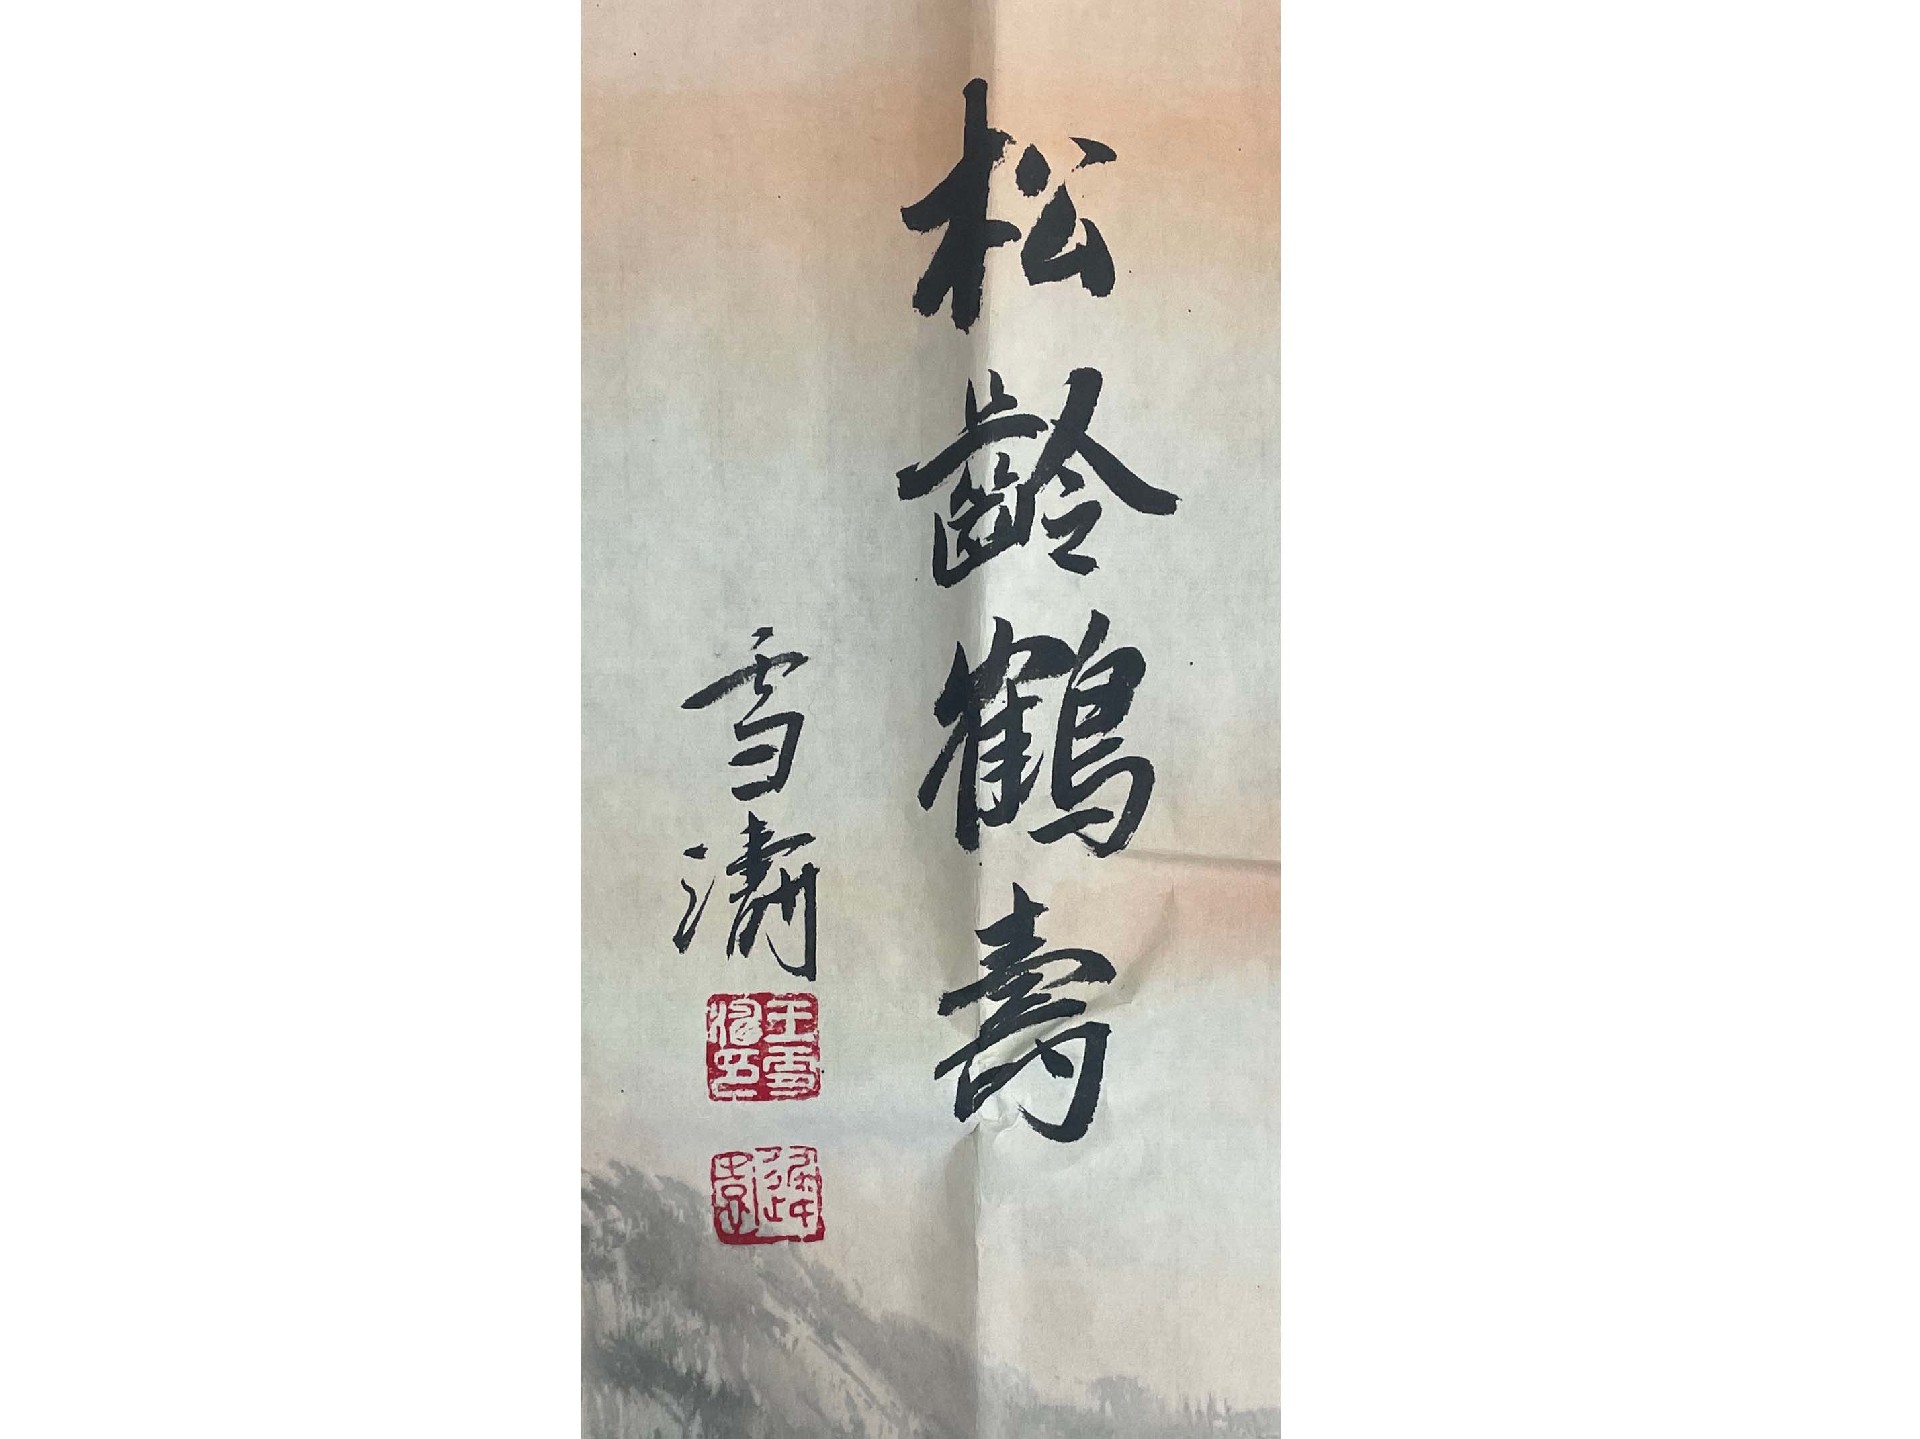 松齡鶴壽
雪濤
王雪濤印
遲園